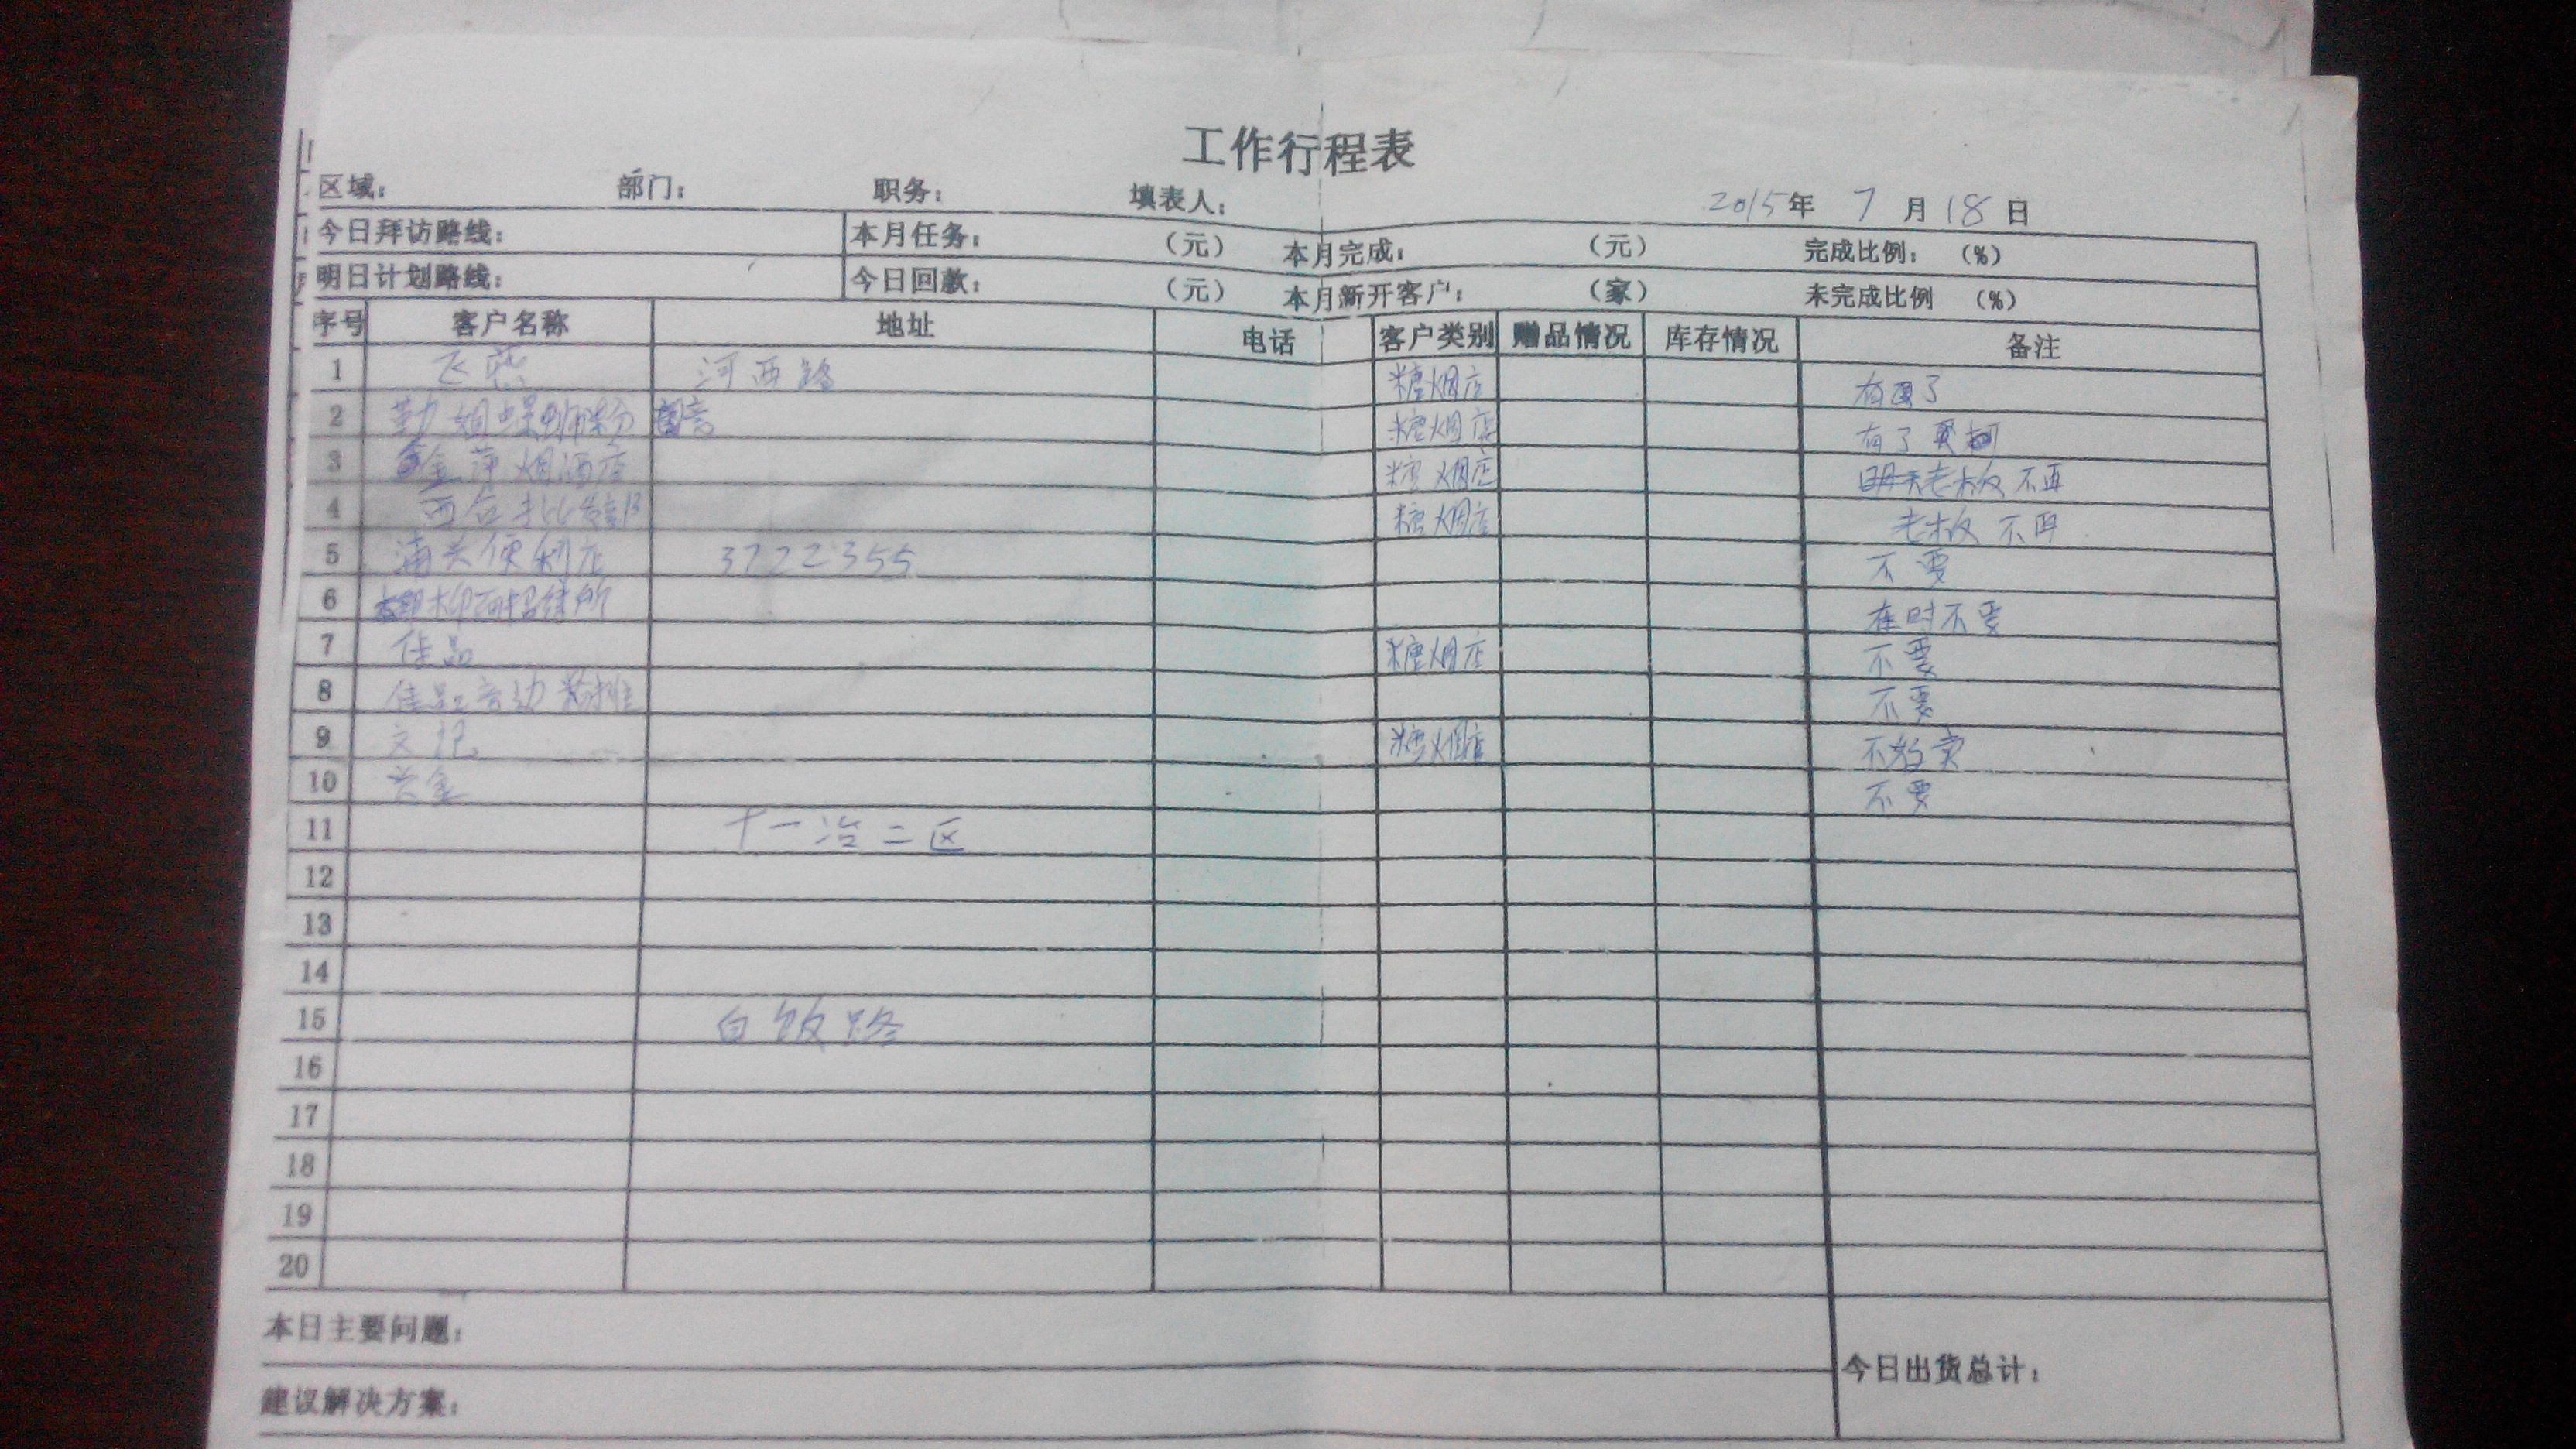 工作行程表
区域： 部门： 职务： 填表人： 2015年 7月18日
今日拜访路线： 本月任务： （元） 本月完成： （元） 完成比例： （%）
明日计划路线： 今日回款： （元） 本月新开客户： （家） 未完成比例 （%）
序号 客户名称 地址 电话 客户类别 赠品情况 库存情况 备注
1 飞燕 河西路 糖烟店 有了
2 勤姐螺蛳粉 糖烟店 有了
3 金萍烟酒店 糖烟店 老板不再
4 糖烟店 老板不再
5 便利店 3722355 不要
6 不要
7 佳品 糖烟店 不要
8 佳品旁边 不要
9 文记 糖烟店 卖
10 兴金 不要
11 十一冶二区
12
13
14
15 白饭路
16
17
18
19
20
本日主要问题：
今日出货总计：
建议解决方案：